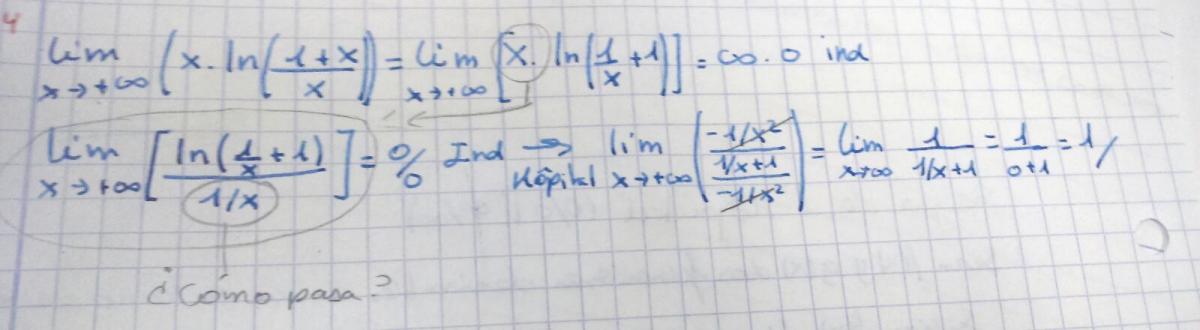 4
lim x→+∞ (x·ln((1+x)/x)) = lim x→+∞ [x·ln(1/x+1)] = ∞·0 ind
lim x→+∞ [ln(1/x+1)/(1/x)] = 0/0 Ind → Hôpital lim x→+∞ ((-1/x²)/(1/x+1)/(-1/x²)) = lim x→∞ 1/(1/x+1) = 1/(0+1) = 1/
¿Cómo pasa?